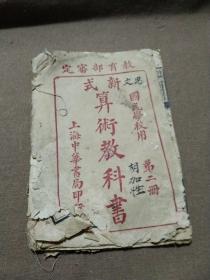 教育部審定
新式
算術教科書
國民學校用
第二冊
胡加性
上海中華書局印